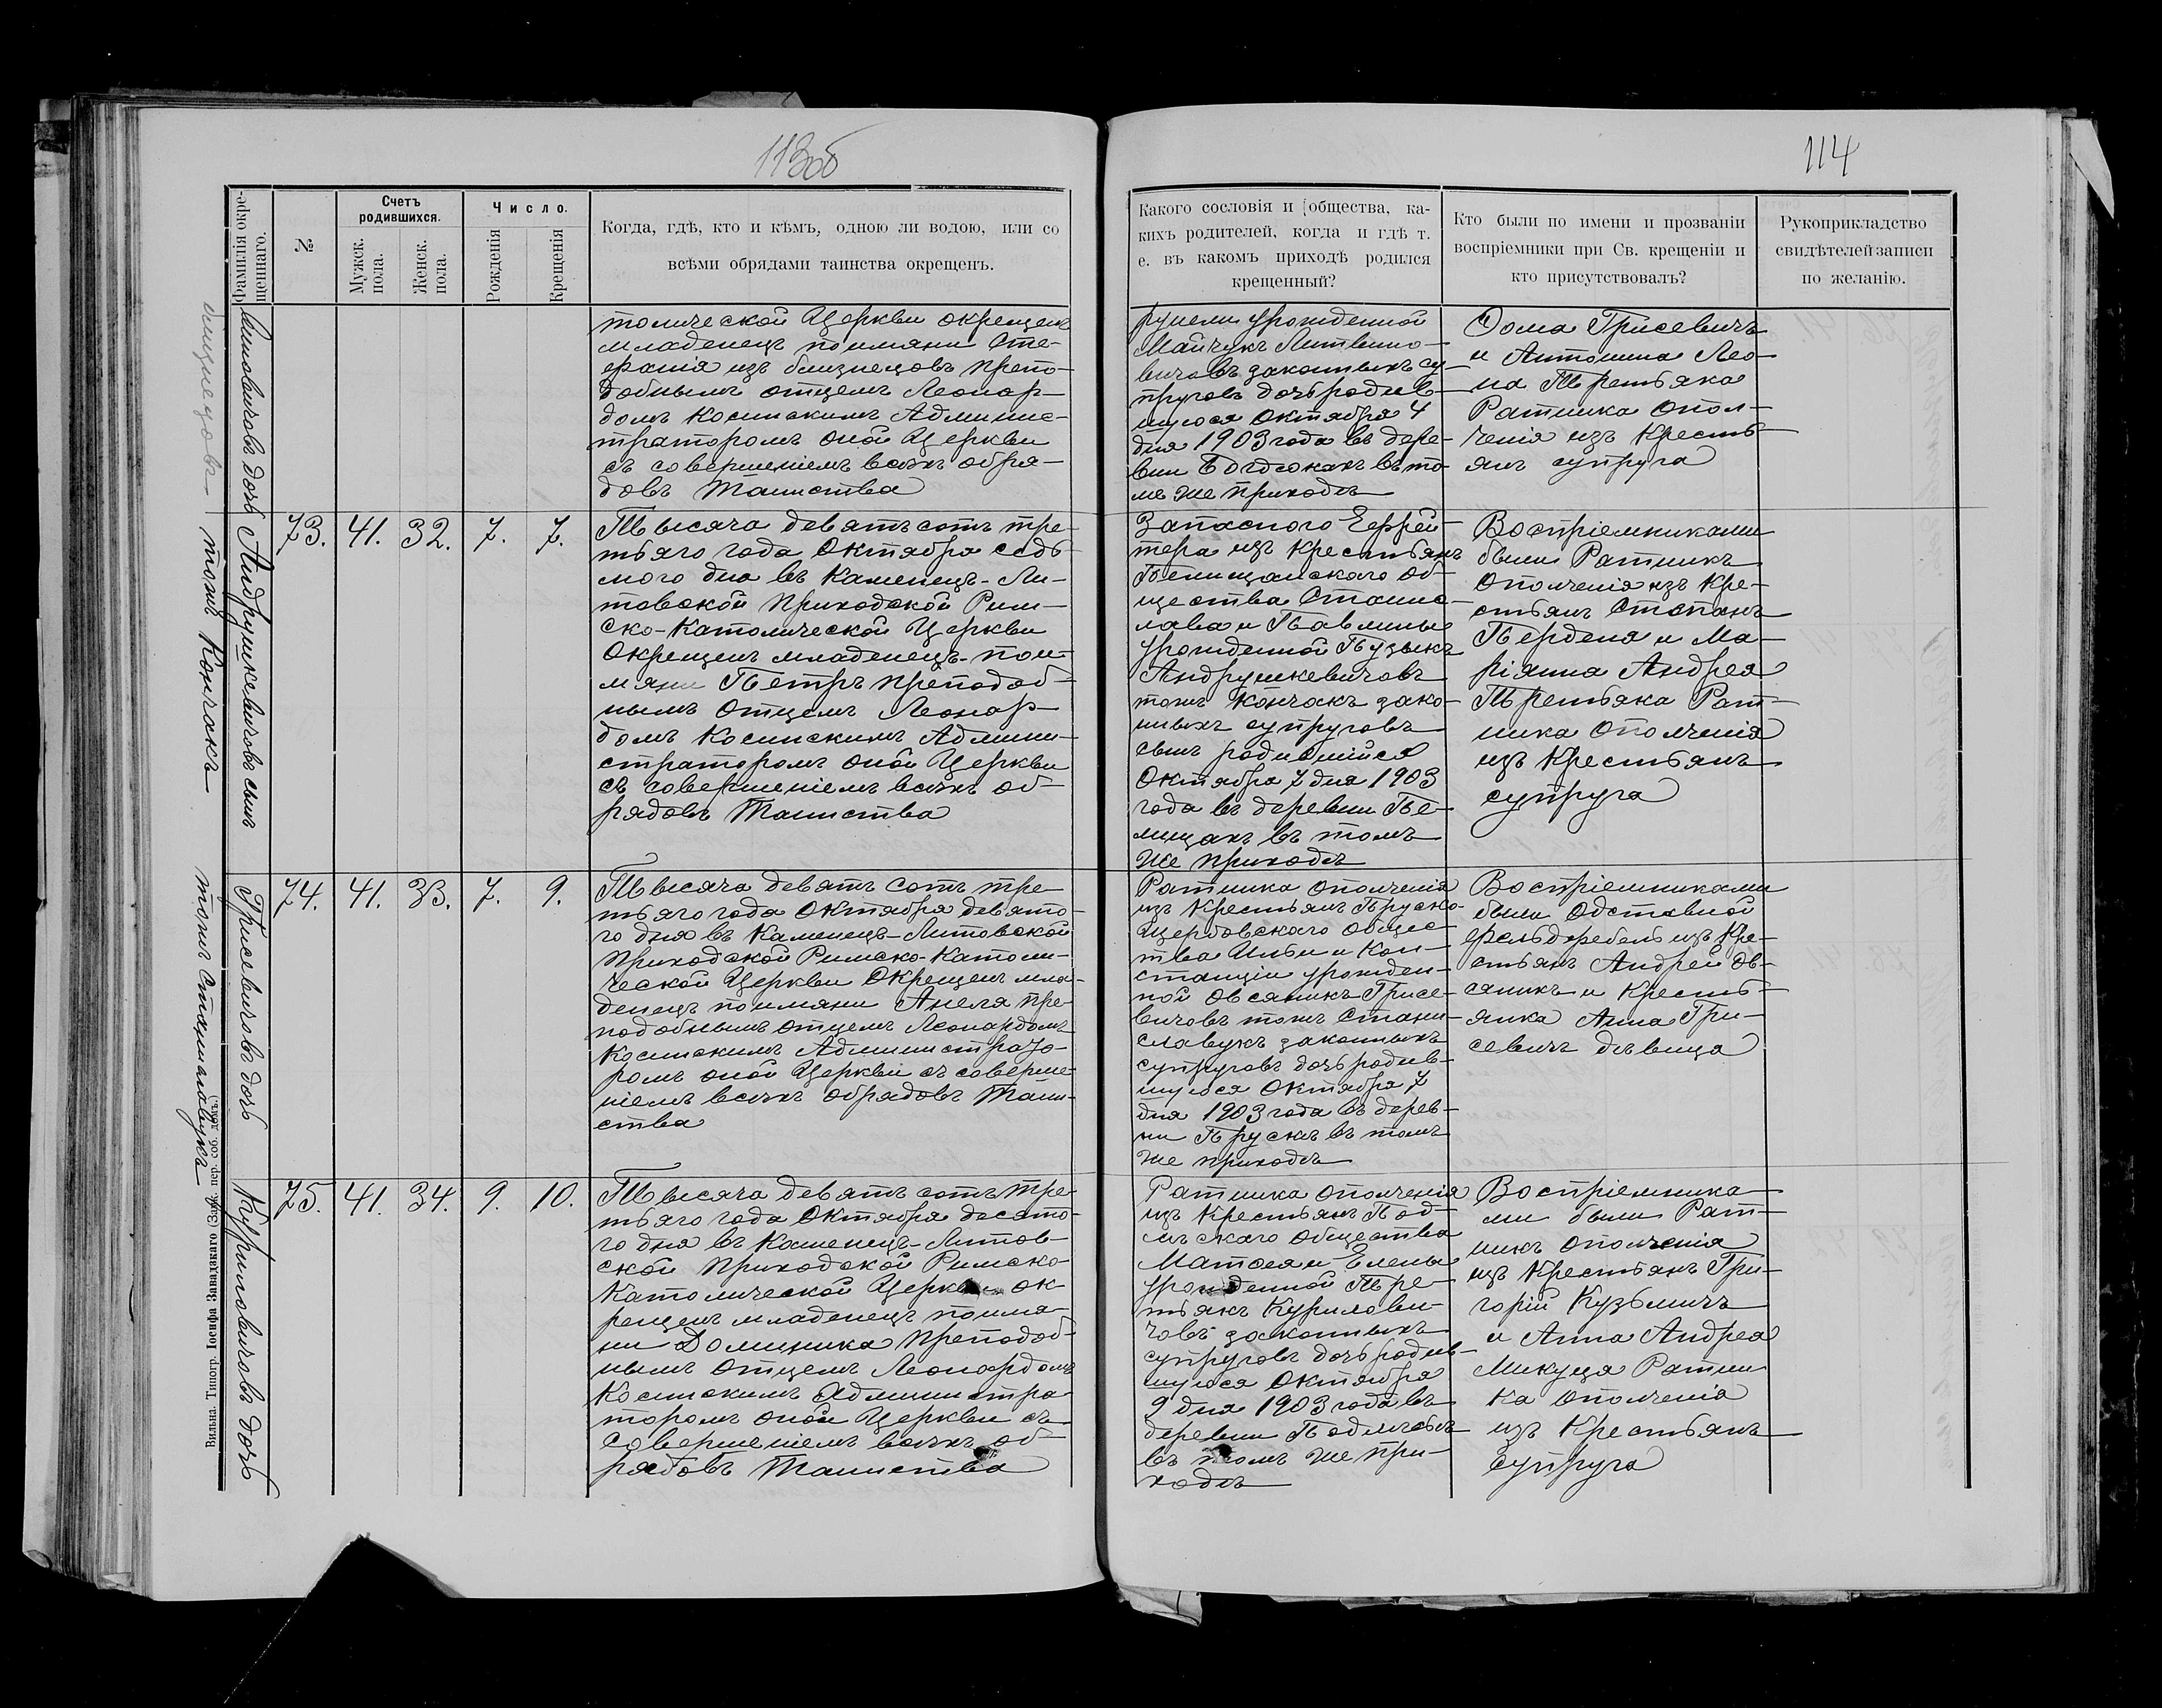 113об
114
Фамилія окре-
щеннаго.
№
Счетъ
родившихся.
Мужск.
пола.
Женск.
пола.
Число.
Рожденія
Крещенія
Когда, гдѣ, кто и кѣмъ, одною ли водою, или со
всѣми обрядами таинства окрещенъ.
Какого сословія и общества, ка-
кихъ родителей, когда и гдѣ т.
е. въ какомъ приходѣ родился
крещенный?
Кто были по имени и прозваніи
воспріемники при Св. крещеніи и
кто присутствовалъ?
Рукоприкладство
свидѣтелей записи
по желанію.
дочь
близнецовъ
толической Церкви окрещенъ
младенецъ поимяни Сте-
фанія изъ близнецовъ препо-
добнымъ отцемъ Леонар-
домъ Косинскимъ Админис-
траторомъ оной Церкви
съ совершеніемъ всѣхъ обря-
довъ Таинства
урожденной
Майчукъ Литвино-
вичовъ законныхъ су-
пруговъ дочь родив-
шуюся Октября 4
дня 1903 года въ дере-
вни въ то-
мъ же приходѣ
Грисевичъ
и Антонина Лео-
на Третьяка
Ратника опол-
ченія изъ кресть-
янъ супруга
Андрушкевичовъ сынъ
тожъ Кончакъ
73.
41.
32.
7.
7.
Тысяча девятьсотъ тре-
тьяго года Октября седь-
мого дня въ Каменецъ-Ли-
товской приходской Рим-
ско-Католической Церкви
окрещенъ младенецъ-пои-
мяни Петръ преподоб-
нымъ отцемъ Леонар-
домъ Косинскимъ Админи-
страторомъ оной Церкви
съ совершеніемъ всѣхъ об-
рядовъ Таинства
Запасного Ефрей-
тера изъ крестьянъ
Пелищанского об-
щества Станис-
лава и Павлины
урожденной Пузыкъ
Андрушкевичовъ
тожъ Кончакъ зако-
нныхъ супруговъ
сынъ родившійся
Октября 7 дня 1903
года въ деревни Пе-
лищахъ въ томъ
же приходѣ
Воспріемниками
были Ратникъ
ополченія изъ кре-
стьянъ Степанъ
Берденя и Ма-
ріянна Андрея
Третьяка Рат-
ника ополченія
изъ крестьянъ
супруга
Грисевичовъ дочь
тожъ Станиславукъ
74.
41.
33.
7.
9.
Тысяча девять сотъ тре
тьяго года Октября девято-
го дня въ Каменецъ-Литовской
приходской Римско-Католи-
ческой Церкви окрещенъ мла-
денецъ поимяни Анеля пре-
подобнымъ отцемъ Леонардомъ
Косинскимъ Администрато-
ромъ оной Церкви съ соверше-
ніемъ всѣхъ обрядовъ Таин-
ства
Ратника ополченія
изъ крестьянъ Пруско-
Щербовскаго общес-
тва Ильи и Кон-
станціи урожден-
ной Овсяникъ Грисе-
вичовъ тожъ Стани-
славукъ законныхъ
супруговъ дочь родив-
шуюся Октября 7
дня 1903 года въ дерев-
ни Прускѣ въ томъ
же приходѣ
Воспріемниками
были Одставной
фельдфебель изъ кре-
стьянъ Андрей Ов-
сяникъ и кресть-
янка Анна Гри-
севичъ дѣвица
Куриловичовъ дочь
75.
41.
34.
9.
10.
Тысяча девятьсотъ тре-
тьяго года Октября десято-
го дня въ Каменецъ-Литов-
ской приходской Римско-
Католической Церкви ок-
рещенъ младенецъ поимя-
ни Доминика преподоб-
нымъ отцемъ Леонардомъ
Косинскимъ Администра-
торомъ оной Церкви съ
совершеніемъ всѣхъ об-
рядовъ Таинства
Ратника ополченія
изъ крестьянъ Под-
скаго общества
Матсея и Елены
урожденной Тре-
тьякъ Курилови-
човъ законныхъ
супруговъ дочь родив-
шуюся Октября
9 дня 1903 года въ
деревни
въ томъ же при-
ходѣ
Воспріемника-
ми были Рат-
никъ ополченія
изъ крестьянъ Гри-
горій Кузьмичъ
и Анна Андрея
Микуца Ратни-
ка ополченія
изъ крестьянъ
супруга
Вильна. Типогр. Іосифа Завадзкаго (Зав. пер. соб. домъ.)